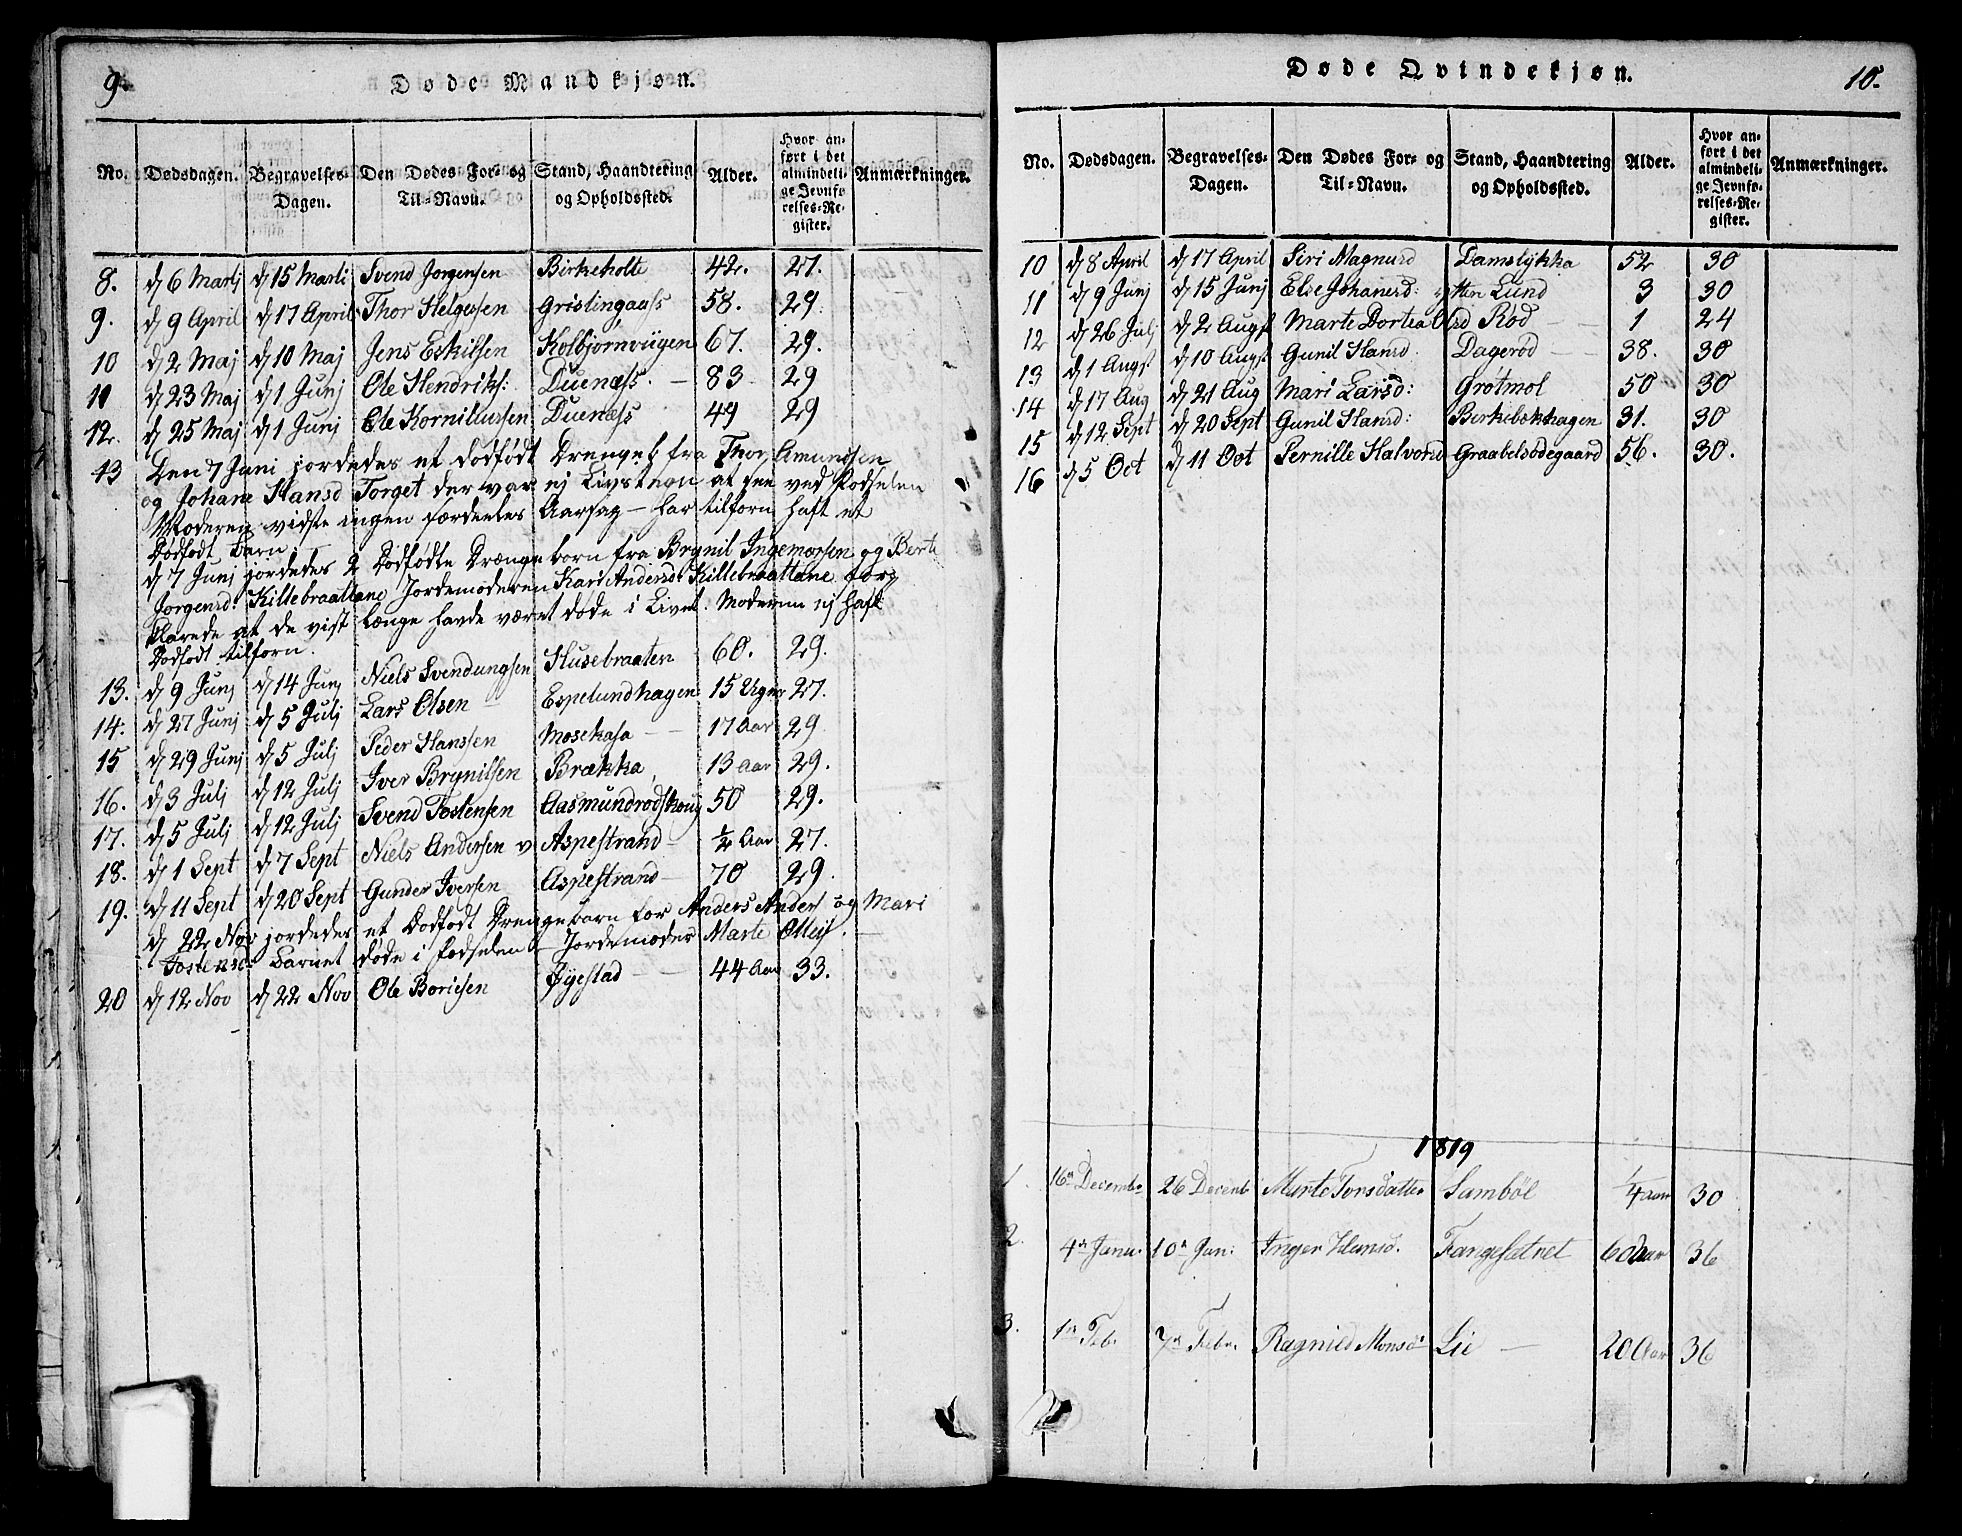 9
Døde Mandkjøn.
No. Dødsdagen. Begravelses-Dagen. Den Dødes For- og Til-Navn. Stand, Haandtering og Opholdssted. Alder. Hvor anført i det almindelige Jevnførelses-Register. Anmærkninger.
8. d 6 Martj d 15 Marti Svend Jorgensen Birkeholte 42. 27.
9. d 9 April d 17 April Thor Helgesen Gristingaass 58. 29.
10 d 2 Maj d 10 Maj Jens Eskilsen Kolbjørnviigen 67. 29.
11 d 23 Maj d 1 Junj Ole Hendriks: Duenæss. 83 29
12. d 25 Maj d 1 Junj Ole Korniliussen Duenæss 49 29
13 Den 7 Juni jordedes et dødfødt Drengeb fra Thor Amundsen
og Johane Hansd Torget der var ej Livstegn at see ved Fødselen
Moderen vidste ingen særdeeles Aarsag – har tilforn haft et
Dødfødt Barn –
d 7 Junj jordedes 2 Dødfødte Drængebørn fra Brynil Ingemorsen og Berte
Jorgensd: Killebraattane Jordemoderen Kari Andersd: Killebraattane for
klarede at de vist længe havde været døde i Livet. Moderen ej haft
Dødfødt tilforn.
13. d 9 Junj d 14 Junj Niels Svendungsen Husebraaten 60. 29.
14. d 27 Junj d 5 Julj Lars Olsen Espelundhagen 15 Uger 27.
15 d 29 Junj d 5 Julj Peder Hanssen Mosekasa 17 Aar 29
16. d 3 Julj d 12 Julj Iver Brynilsen Brækka 13 Aar 29.
17. d 5 Julj d 12 Julj Svend Tostensen Aasmundrødskoug 50 29.
18. d 1 Sept d 7 Sept Niels Andersen v Aspestrand 1/2 Aar 27.
19. d 11 Sept d 20 Sept Gunder Iversen Aspestrand 70 29.
d 22 Nov jordedes et Dødfødt Drengebarn for Anders Anders og Mari
Tostensd: Barnet døde i fødselen – Jordemoder Marte
20 d 12 Nov d 22 Nov Ole Boriesen Øyestad 44 Aar 33.
Døde Qvindekjøn.
10.
No. Dødsdagen. Begravelses-Dagen. Den Dødes For- og Til-Navn. Stand, Haandtering og Opholdssted. Alder. Hvor anført i det almindelige Jevnførelses-Register. Anmærkninger.
10 d 8 April d 17 April Siri Magnusd Damslykka 52 30
11 d 9 Junj d 15 Junj Else Johanesd: ytten Lund 3 30
12 d 26 Julj d 2 Augst Marte Dortea Olsd Rød 1 24
13 d 1 Augst d 10 Augst Gunil Hansd. Dagerød 38. 30
14 d 17 Aug d 21 Aug Mari Larsd: Grøtmol 50 30
15 d 12 Sept d 20 Sept Gunil Hansd: Birkebekhagen 31. 30
16 d 5 Oct d 11 Oct Pernille Halvorsd Graabelsødegaard 56. 30.
1819
1. 16de Decembr 26 Decemb Marte Torsdatter Sambøl 1/4 aar 30
2. 4de Janu. 10de Jan: Inger Hansd. Fangesætret 60 Aar 36
3. 1de Feb. 7de Febr. Ragnild Monsd Lie 20 Aar 36